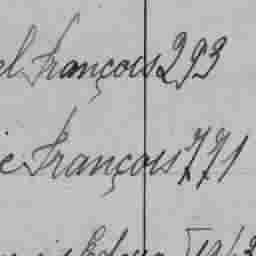 el François 293
ie François 771